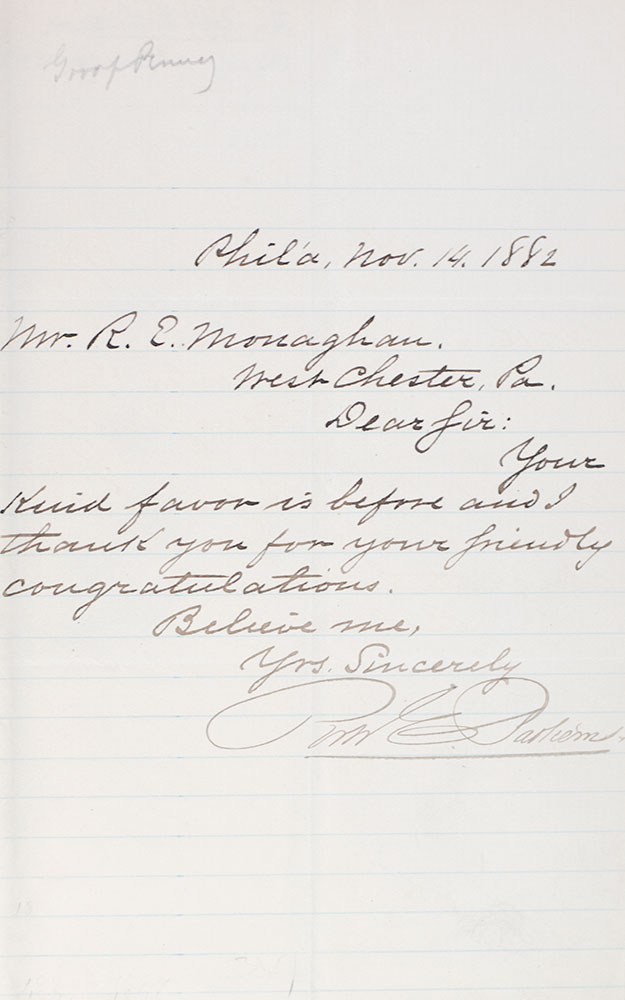 Gov of Penna
Phil'a, Nov. 14. 1882
Mr. R. E. Monaghan.
West Chester, Pa.
Dear Sir:
Your
Kind favor is before and I
thank you for your friendly
congratulations.
Believe me,
Yrs. Sincerely
Robt E. Pattison